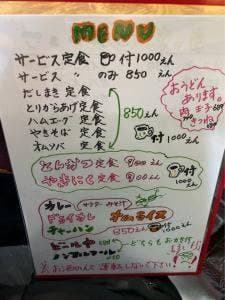 MENU
サービス定食 付1000えん
サービス 〃 のみ 850 えん
だしまき定食
とりからあげ定食
ハムエッグ定食
やきそば 定食
オムソバ 定食
850えん
付
1000えん
おうどん
あります。
肉 玉子
きつね
とんかつ定食
やきにく定食
付
1000えん
カレー
サラダ・みそ汁
ドライカレー
オムライス
チャーハン
850えん
付
1000えん
ビール
ノンアルコール
どちらも おかき付
運転しないで下さい!